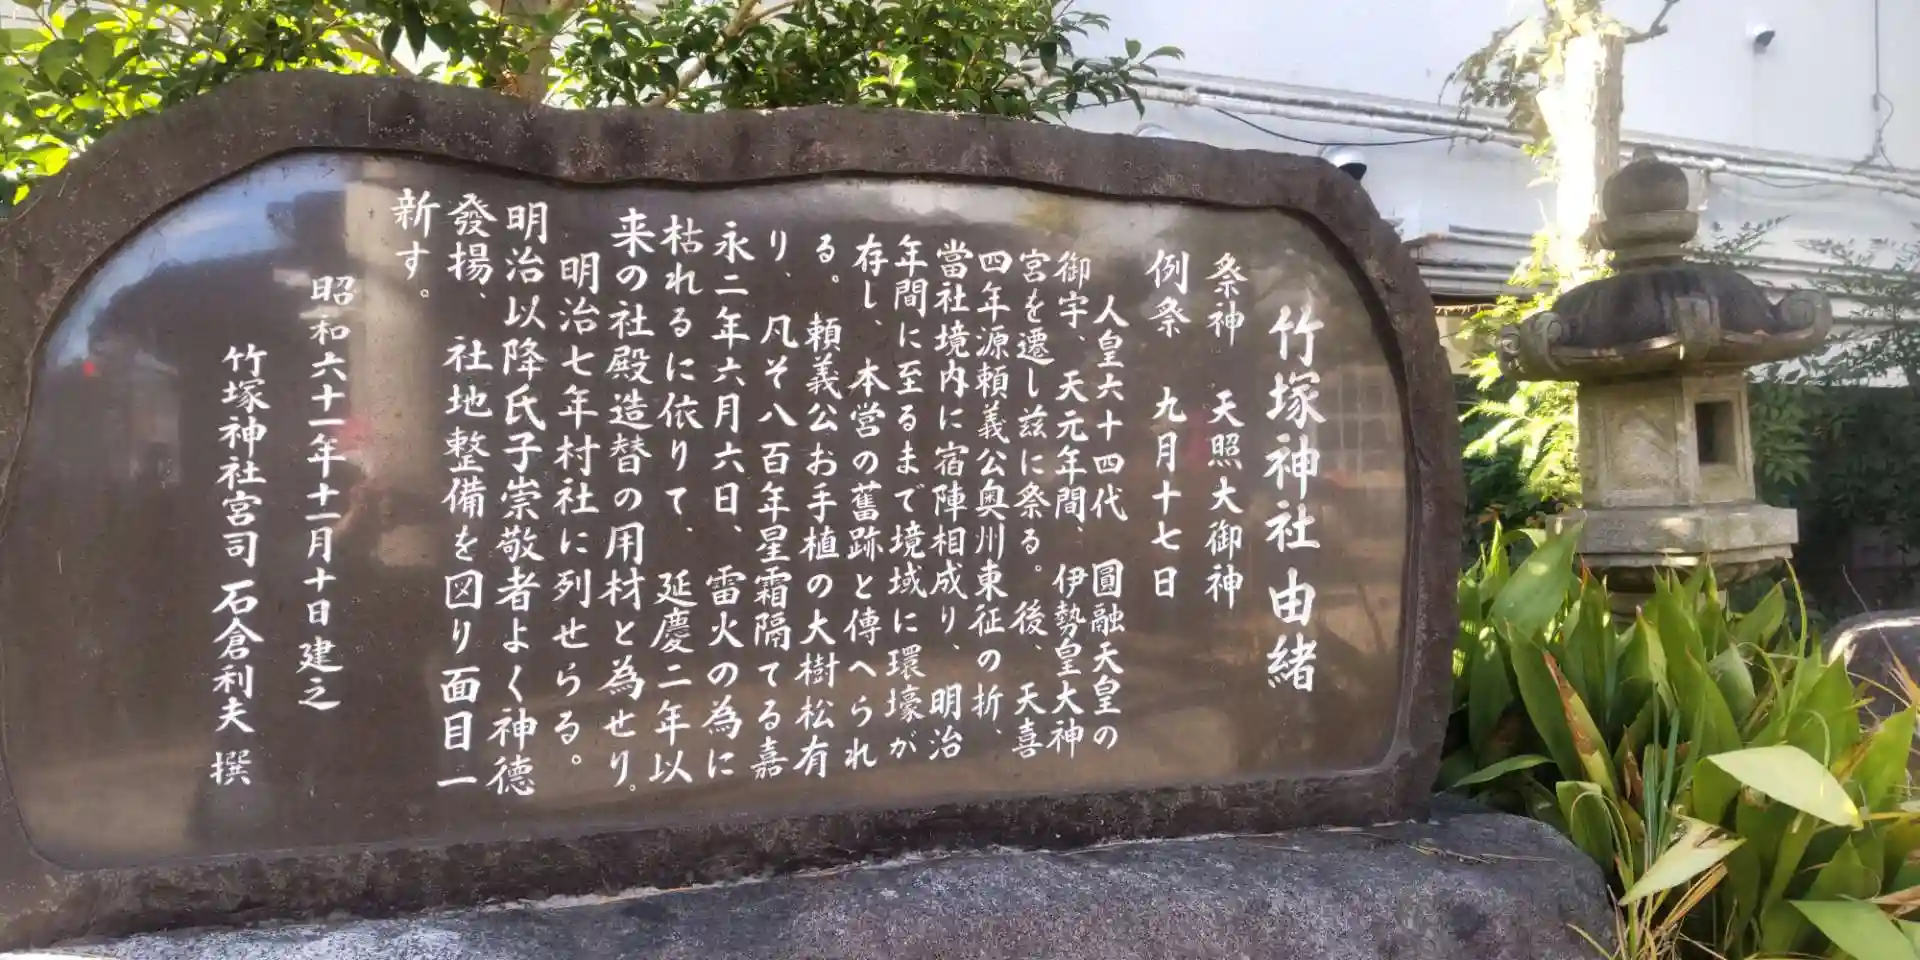 竹塚神社由緒
祭神　天照大御神
例祭　九月十七日
人皇六十四代　圓融天皇の
御宇、天元年間、伊勢皇大神
宮を遷し玆に祭る。後、天喜
四年源頼義公奥州東征の折、
當社境内に宿陣相成り、明治
年間に至るまで境域に環壕が
存し、本営の舊跡と傳へられ
る。頼義公お手植の大樹松有
り、凡そ八百年星霜隔てる嘉
永二年六月六日、雷火の為に
枯れるに依りて、延慶二年以
来の社殿造替の用材と為せり。
明治七年村社に列せらる。
明治以降氏子崇敬者よく神德
發揚、社地整備を図り面目一
新す。
昭和六十一年十一月十日建之
竹塚神社宮司　石倉利夫　撰